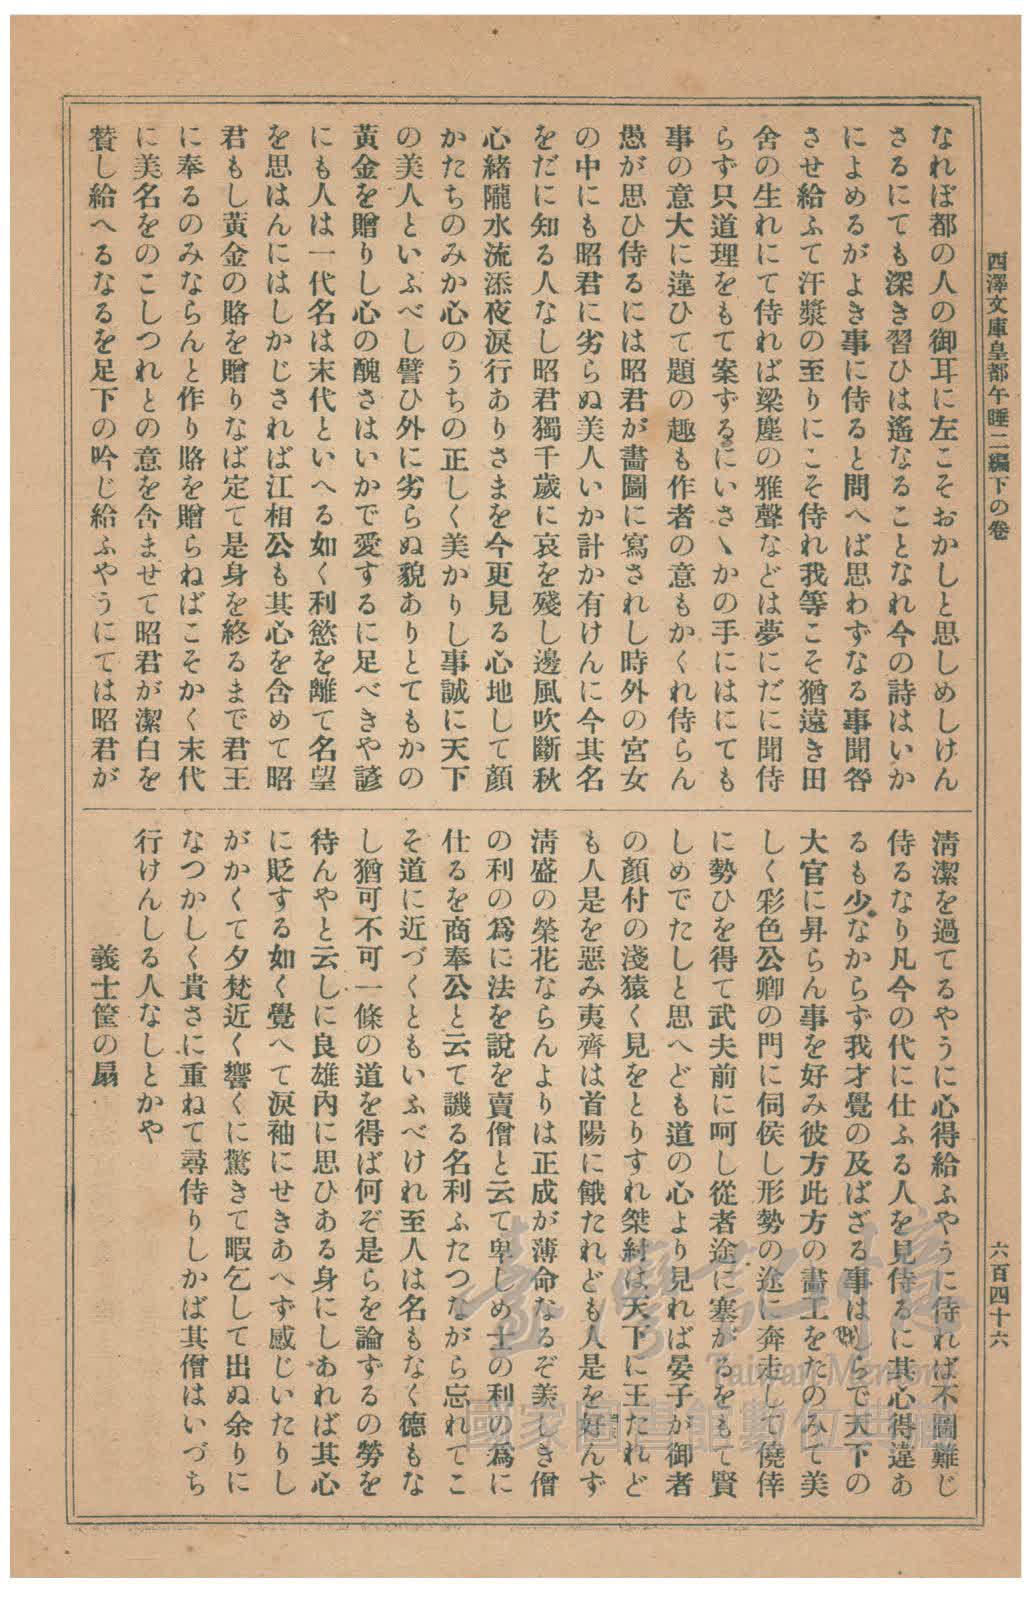 西澤文庫皇都午睡二編下の卷
六百四十六
なれぼ都の人の御耳に左こそおかしと思しめしけん
さるにても深き習ひは遙なることなれ今の詩はいか
によめるがよき事に侍ると問へば思わずなる事聞咎
させ給ふて汗漿の至りにこそ侍れ我等こそ猶遠き田
舍の生れにて侍れば梁塵の雅聲などは夢にだに聞侍
らず只道理をもて案ずるにいさゝかの手にはにても
事の意大に違ひて題の趣も作者の意もかくれ侍らん
愚が思ひ侍るには昭君が畵圖に寫されし時外の宮女
の中にも昭君に劣らぬ美人いか計か有けんに今其名
をだに知る人なし昭君獨千歲に哀を殘し邊風吹斷秋
心緒隴水流添夜淚行ありさまを今更見る心地して顏
かたちのみか心のうちの正しく美かりし事誠に天下
の美人といふべし譬ひ外に劣らぬ貌ありとてもかの
黃金を贈りし心の醜さはいかで愛するに足べきや諺
にも人は一代名は末代といへる如く利慾を離て名望
を思はんにはしかじされば江相公も其心を含めて昭
君もし黃金の賂を贈りなば定て是身を終るまで君王
に奉るのみならんと作り賂を贈らねばこそかく末代
に美名をのこしつれとの意を含ませて昭君が潔白を
賛し給へるなるを足下の吟じ給ふやうにては昭君が
淸潔を過てるやうに心得給ふやうに侍れば不圖難じ
侍るなり凡今の代に仕ふる人を見侍るに其心得違あ
るも少なからず我才覺の及ばざる事はしらで天下の
大官に昇らん事を好み彼方此方の畵工をたのみて美
しく彩色公卿の門に伺侯し形勢の途に奔走して僥倖
に勢ひを得て武夫前に呵し從者途に塞がるをもて賢
しめでたしと思へども道の心より見れば晏子が御者
の顏付の淺猿く見をとりすれ桀紂は天下に王たれど
も人是を惡み夷齊は首陽に餓たれども人是を好んず
淸盛の榮花ならんよりは正成が薄命なるぞ美しき僧
の利の爲に法を說を賣僧と云て卑しめ士の利の爲に
仕るを商奉公と云て譏る名利ふたつながら忘れてこ
そ道に近づくともいふべけれ至人は名もなく德もな
し猶可不可一條の道を得ば何ぞ是らを論ずるの勞を
待んやと云しに良雄內に思ひある身にしあれば其心
に貶する如く覺へて淚袖にせきあへず感じいたりし
がかくて夕梵近く響くに驚きて暇乞して出ぬ余りに
なつかしく貴さに重ねて尋侍りしかば其僧はいづち
行けんしる人なしとかや
義士筐の扇
臺灣記憶
Taiwan Memory
國家圖書館數位典藏